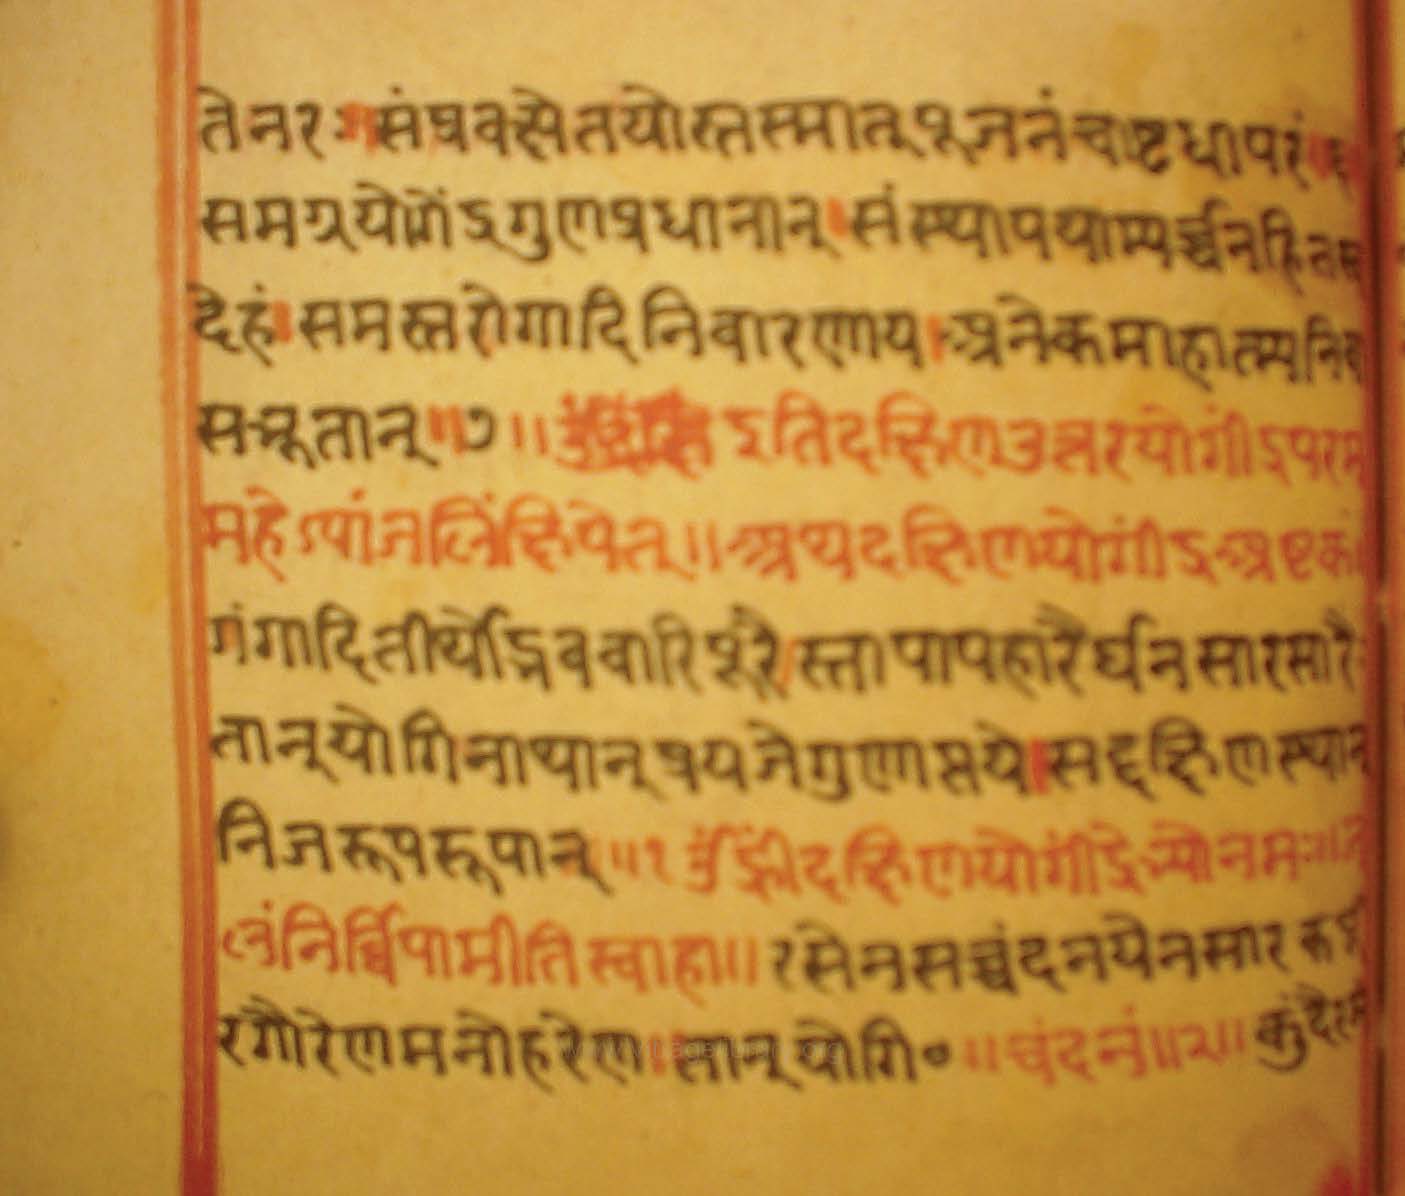 ते नरः ॥ संप्रवक्षे तयोस्तस्मात् पूजनं चाष्टधापरं
समग्रयोगेंऽगुणप्रधानान् । संस्थापयाम्यर्च्चनहितस
देहं । समस्तरोगादिनिवारणाय । अनेकमाहात्म्यनि
सन्नूतान् ॥ ७ ॥ इतिदक्षिणउत्तरयोगींऽपरम
महेष्पांजलिंक्षिपेत् ॥ अथदक्षिणयोगींऽअष्टकं
गंगादितीर्थोद्भववारिपूरै स्तापापहारैर्घनसारसारै
तान्योगिनाथान्प्रयजेगुणाप्तये । सद्दक्षिणस्थान
निजरूपरूपान् ॥१ ॐ ह्रीं दक्षिणयोगींद्रेभ्योनमः
लंनिर्व्विपामीतिस्वाहा ॥ रसेनसच्चंदनयेनसार
रगौरेणमनोहरेण । तान्योगि॰ ॥ चंदनं ॥२॥
www.vitragvani.org